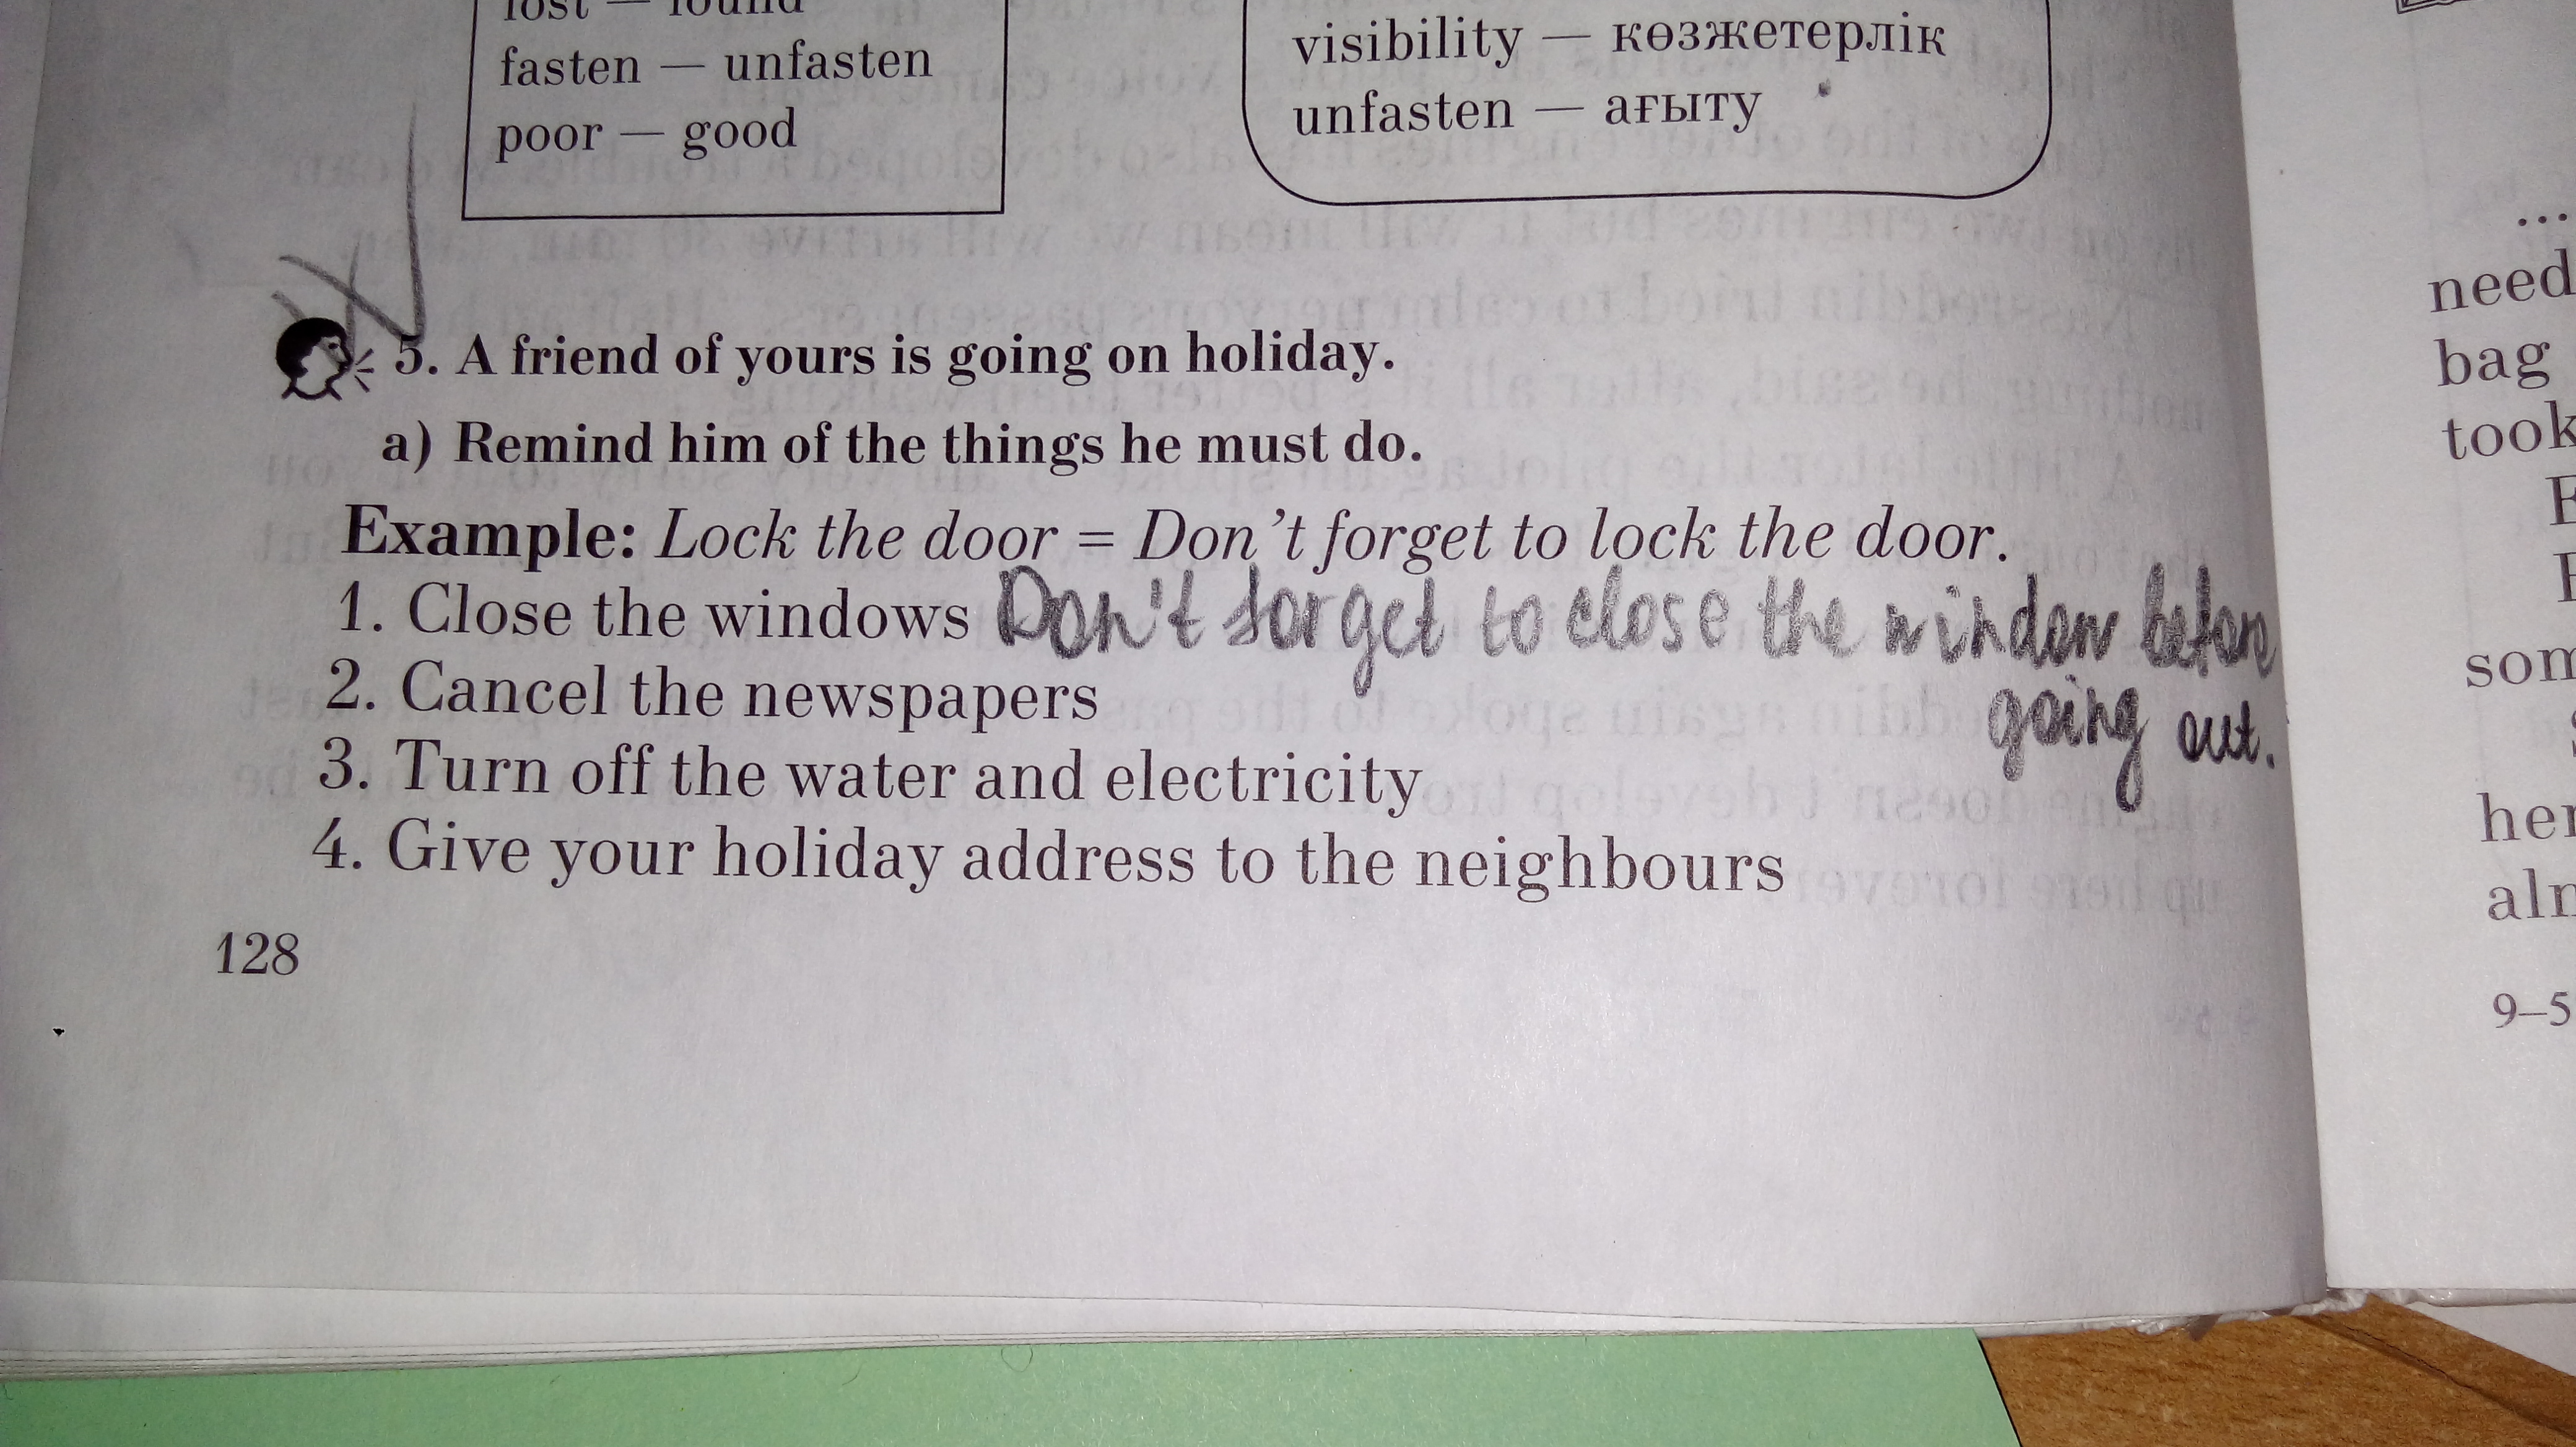 lost — found
fasten — unfasten
poor — good
visibility — көзжетерлік
unfasten — ағыту
5. A friend of yours is going on holiday.
a) Remind him of the things he must do.
Example: Lock the door = Don't forget to lock the door.
1. Close the windows Don't forget to close the window before
going out.
2. Cancel the newspapers
3. Turn off the water and electricity
4. Give your holiday address to the neighbours
128
...
need
bag
took
som
her
9–5